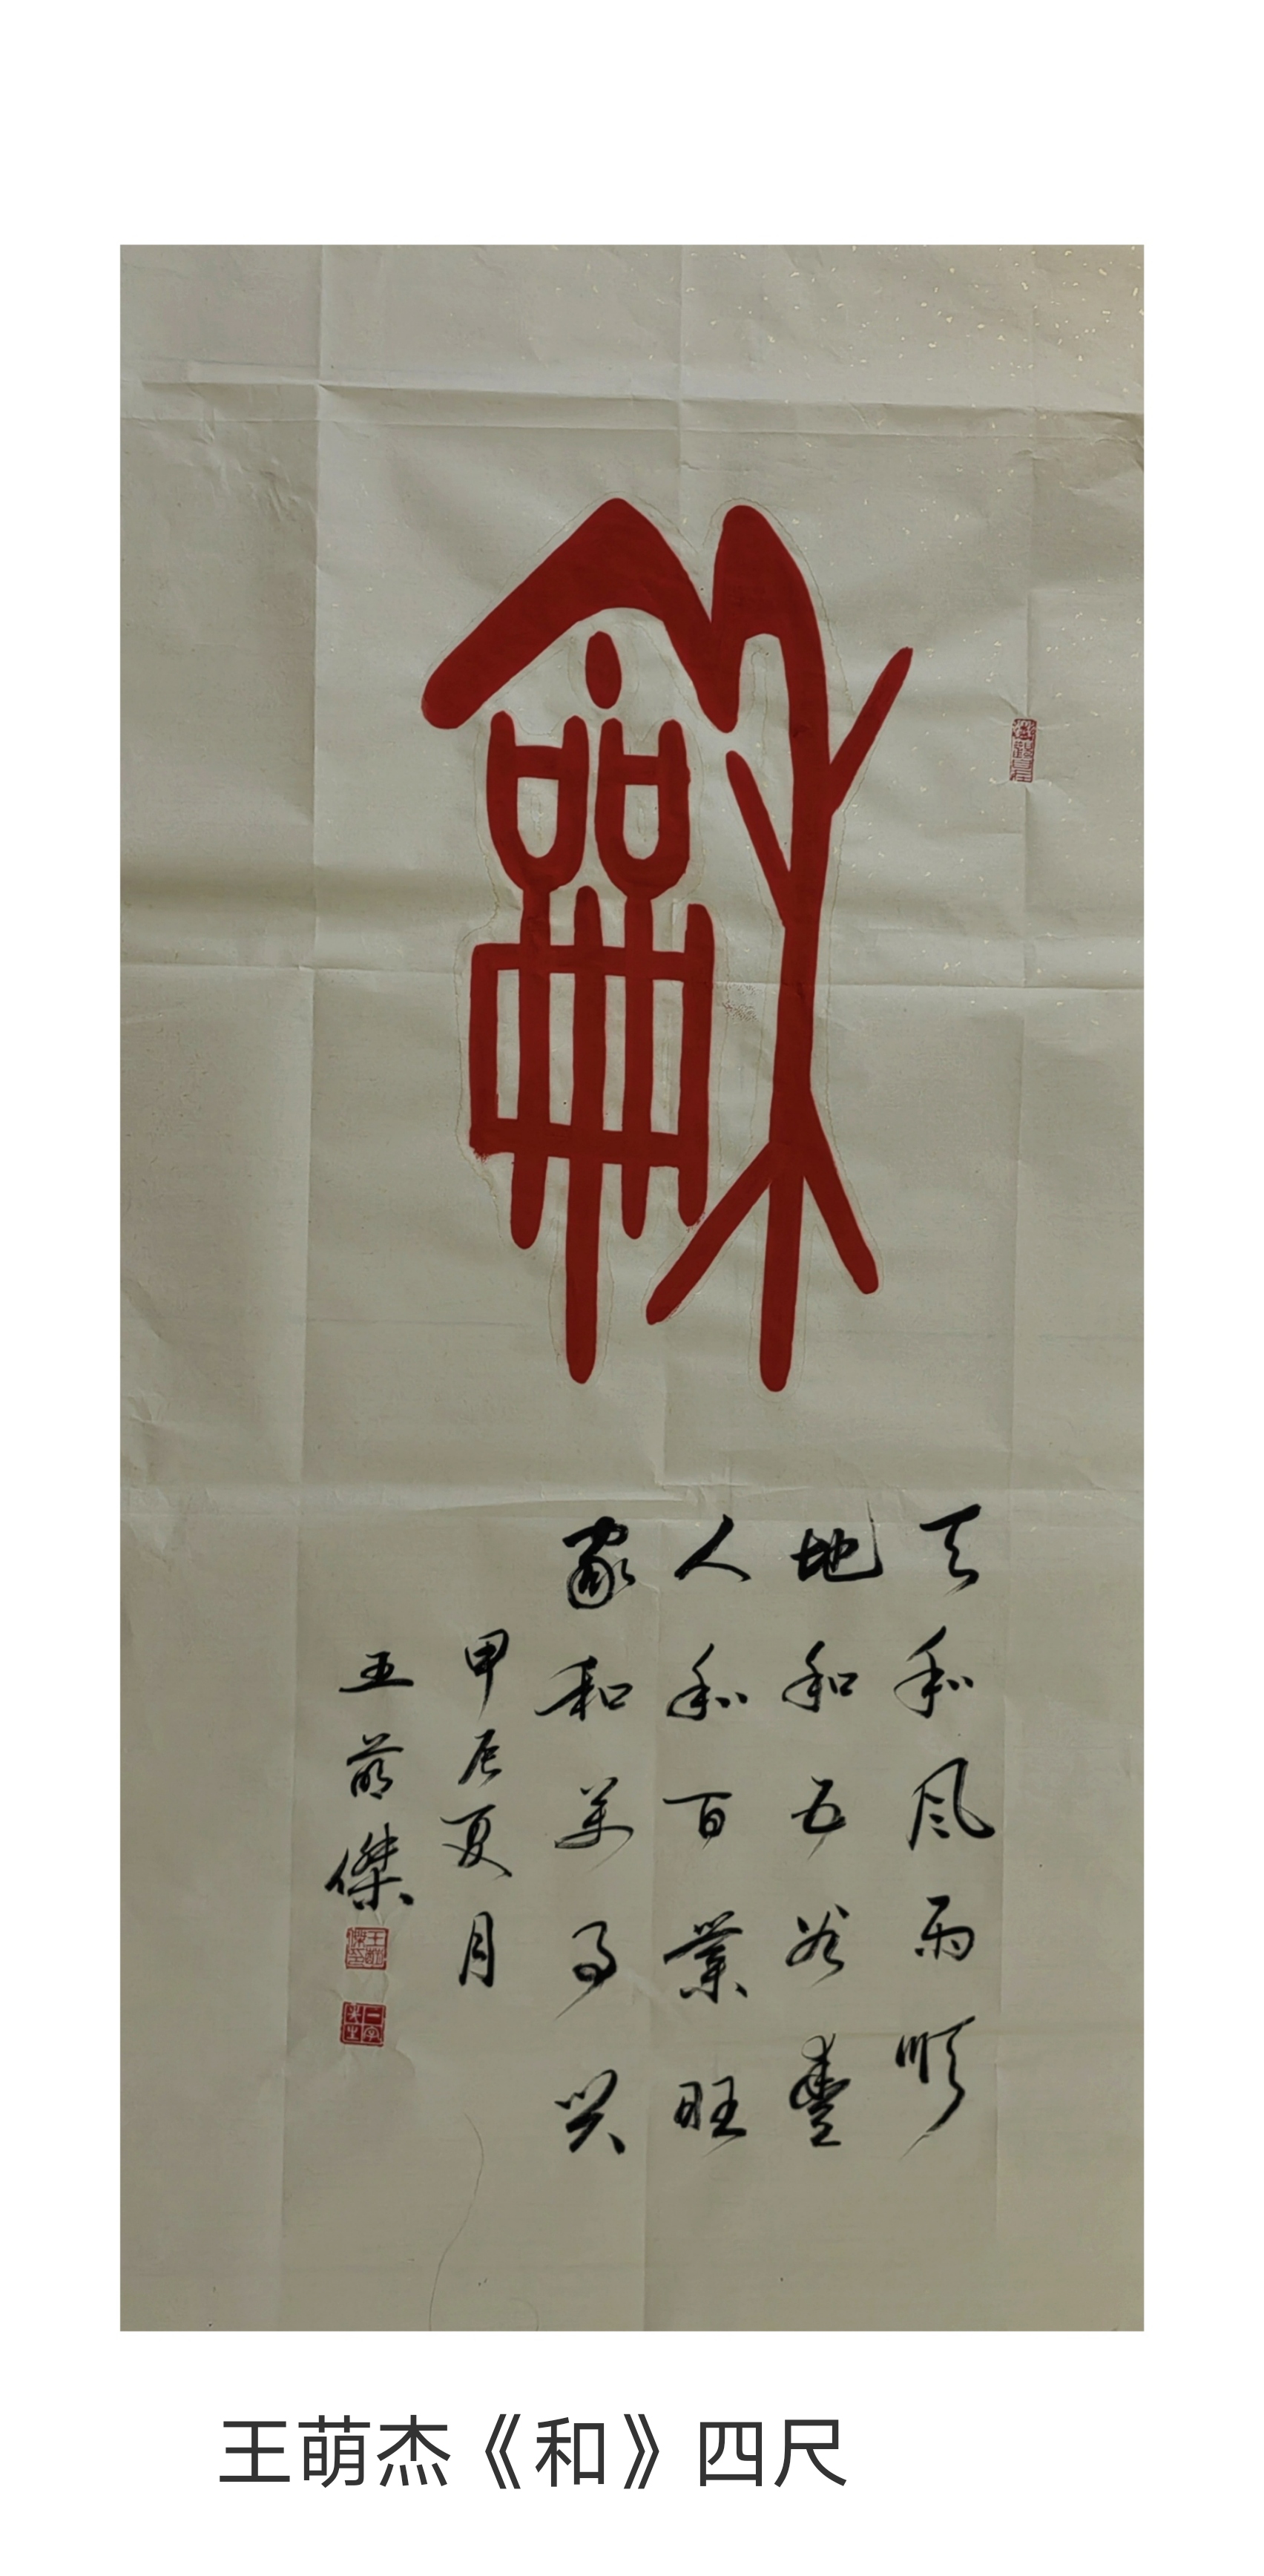 龢
天和风雨顺
地和五谷豐
人和百業旺
家和万事兴
甲辰夏月
王萌傑
一字先生
王萌杰《和》四尺